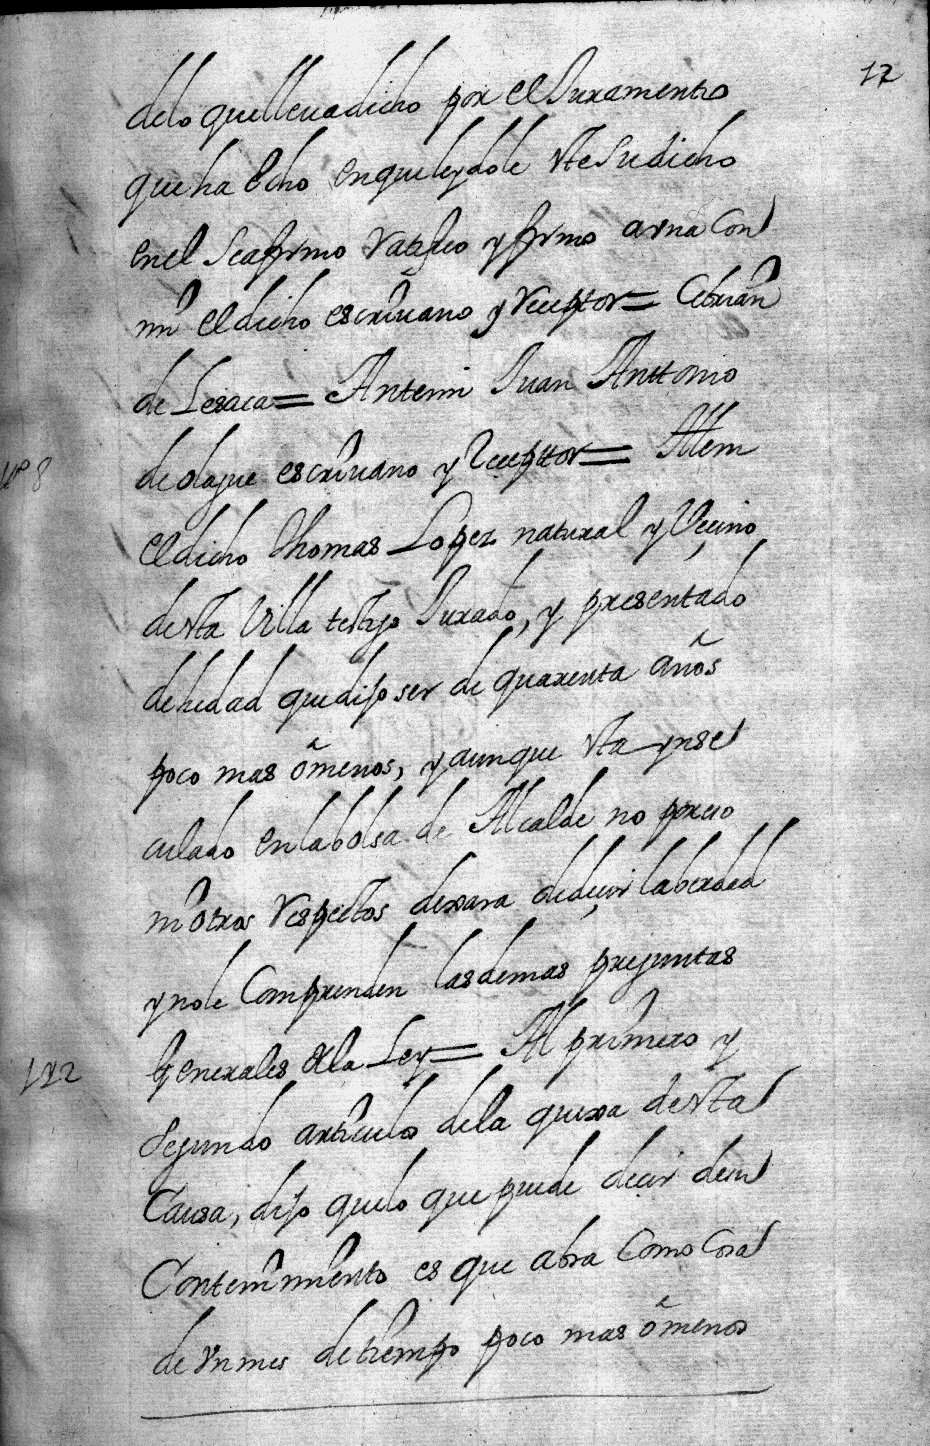 12
delo que lleua dicho por el Juramento
que ha echo en que leydole este su dicho
en el se afirmo ratifico y firmo a vna con
mi el dicho escriuano y receptor = Cebrian
de Lesaca = Ante mi Juan Anttonio
de olague escriuano y Receptor = Ittem
n.º 8
el dicho Thomas Lopez natural y Vecino
desta Villa testigo Jurado, y presentado
de hedad que dijo ser de quarenta años
poco mas o menos, y aunque esta ynse
culado en la bolsa de Alcalde no por eso
ni otros respectos dexara de decir la berdad
y no le Comprenden las demas preguntas
Generales de la Ley = Al primero y
1 y 2
Segundo articulos de la quexa desta
Causa, dijo que lo que puede decir de su
Contenimiento es que abra Como Cosa
de vn mes de tiempo poco mas o menos